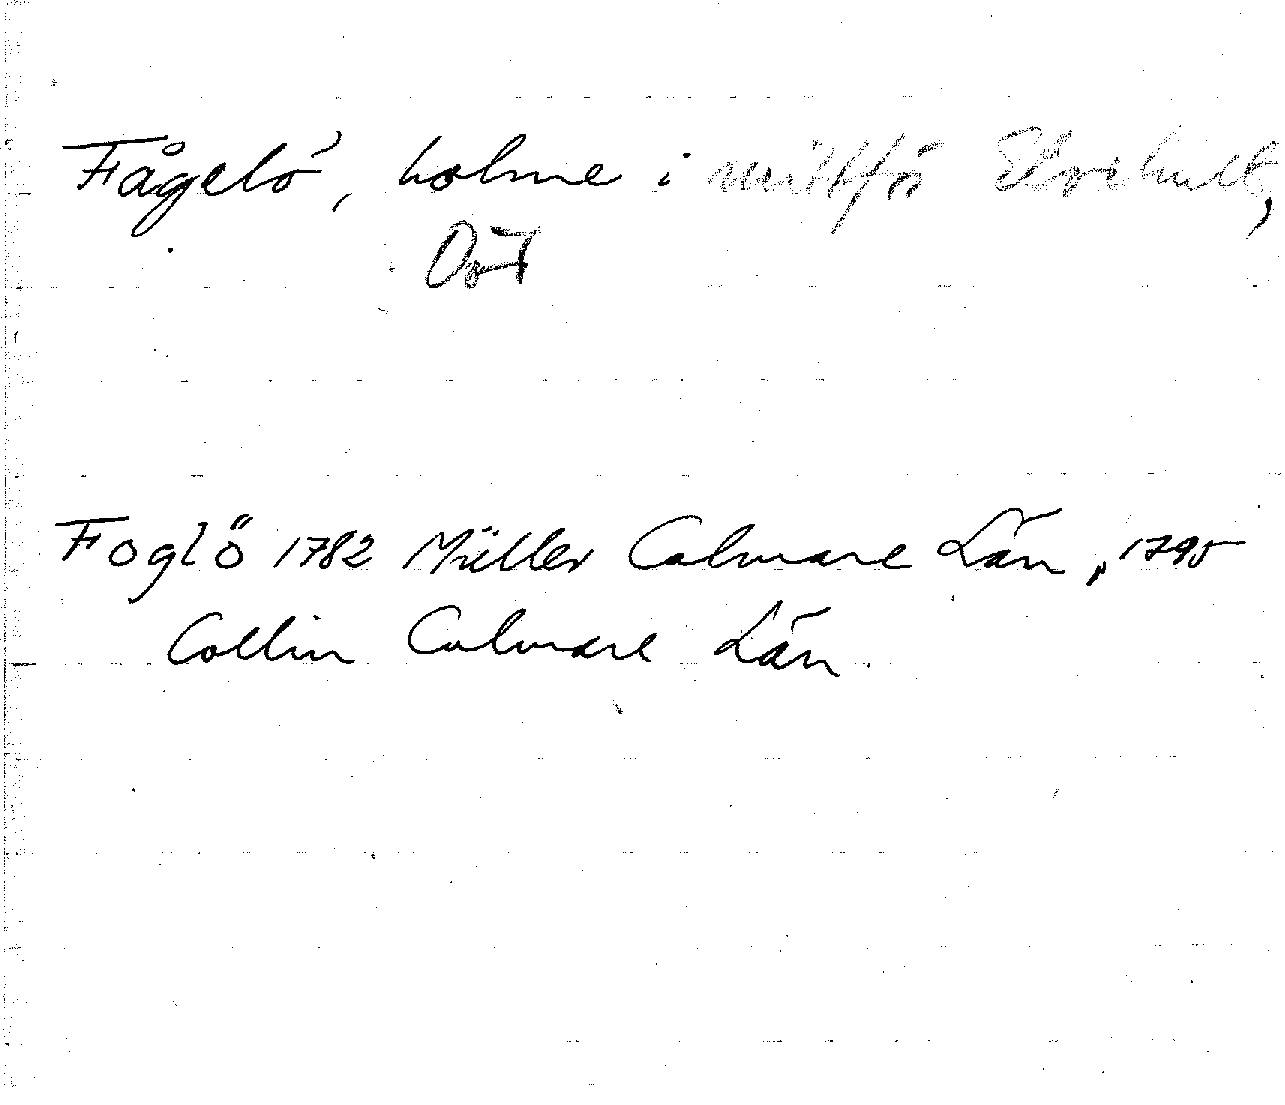 Fågelö, holme i mittför Elvehult,
Ost
Foglö 1782 Müller Calmare Län, 1795
Collin Calmare Län.